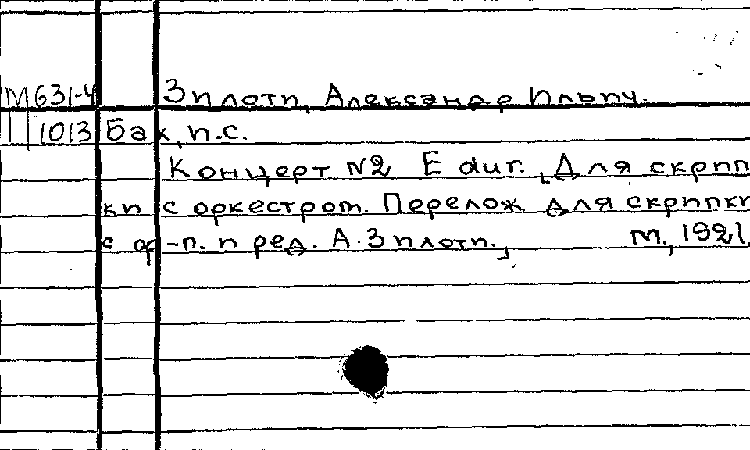 М631-4 Зилоти, Александр Ильич.
1013 Бах, И.С.
Концерт №2 E dur. [Для скрип
ки с оркестром. Перелож для скрипки
с ф-п. и ред. А. Зилоти.] М., 1921